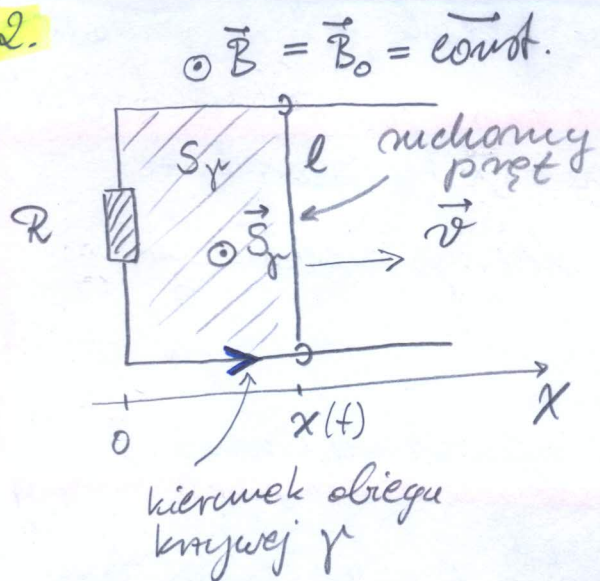 2.
⊙ B⃗ = B⃗₀ = const.
S_γ
l
ruchomy
pręt
R
⊙ S⃗_γ
v⃗
0
x(t)
X
kierunek obiegu
krzywej γ